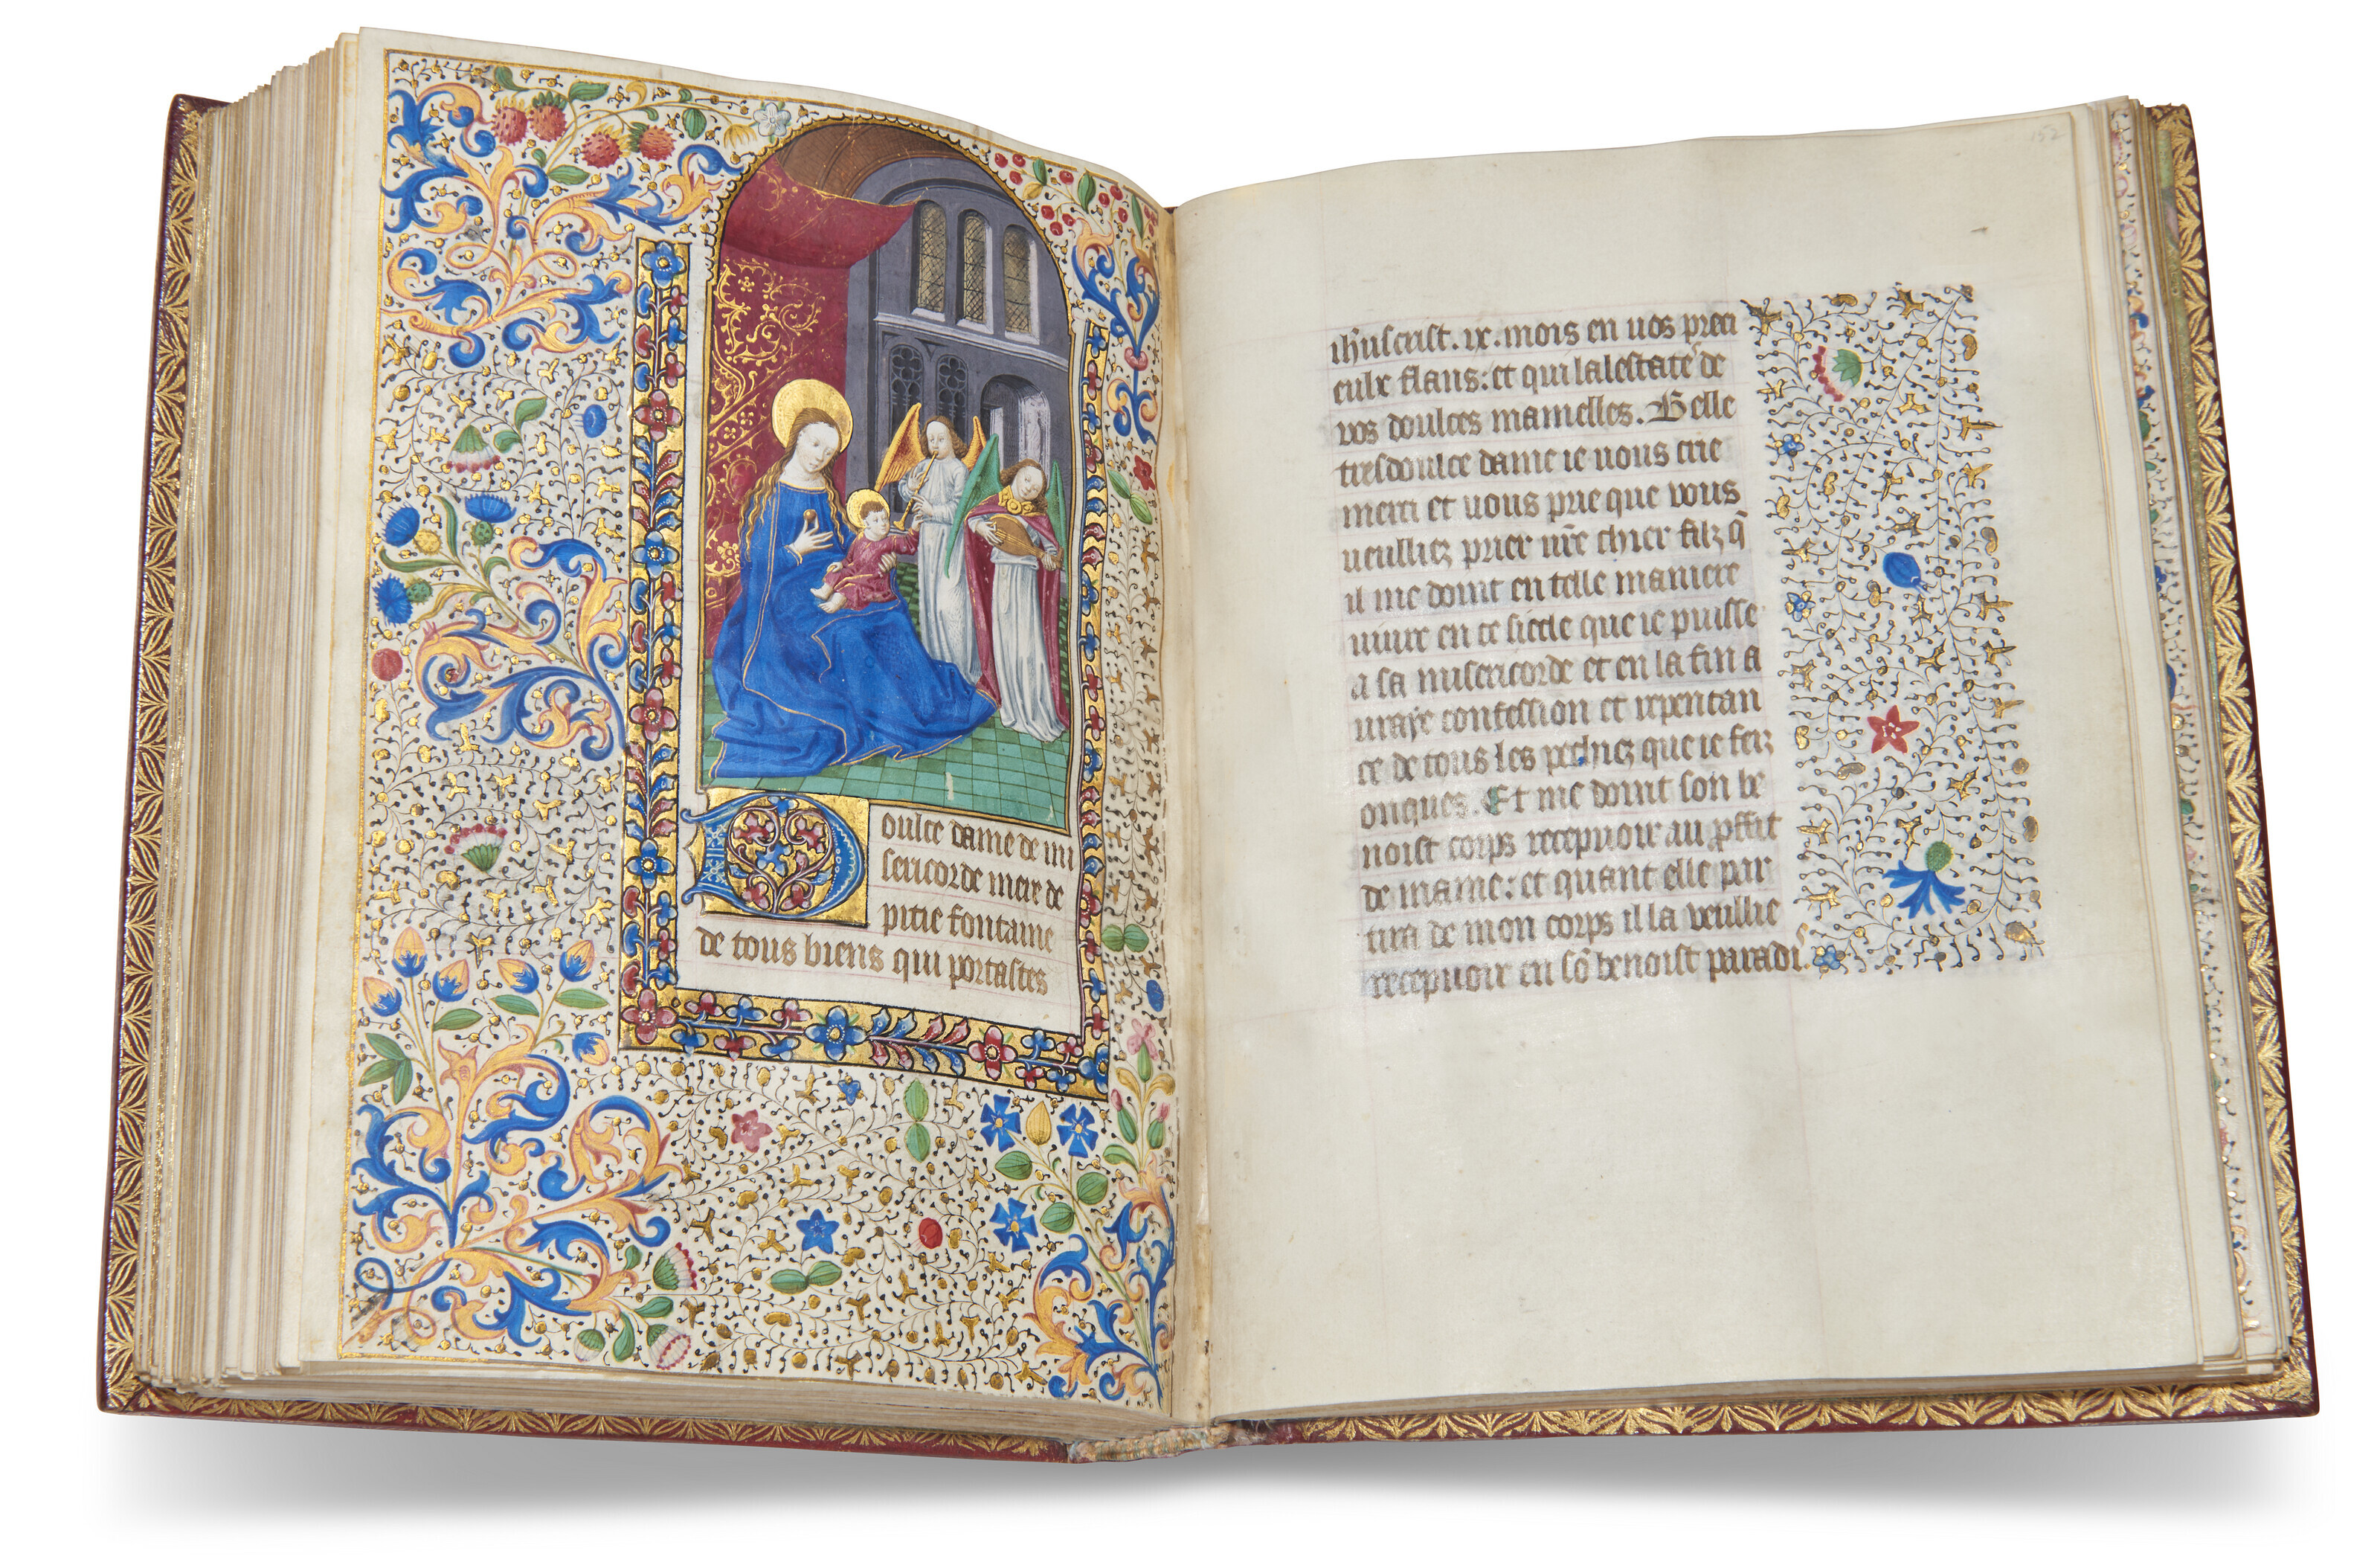 Doulce dame de mi
sericorde mere de
pitie fontaine
de tous biens qui portastes
152
ih̃uscrist. ix. mois en uos preci
eulx flans: et qui lalestates de
vos doulces mamelles. Belle
tresdoulce dame ie uous crie
merci et uous prie que vous
ueulliez prier ur̃e chier filz q̃
il me doint en telle maniere
uiure en ce siecle que ie puisse
a sa misericorde et en la fin a
uraye confession et repentan
ce de tous les pechiez que ie feiz
onques. Et me doint son be
noist corps recepuoir au ꝓffit
de mame: et quant elle par
tira de mon corps il la veullie
recepuoir en sõ benoist paradis